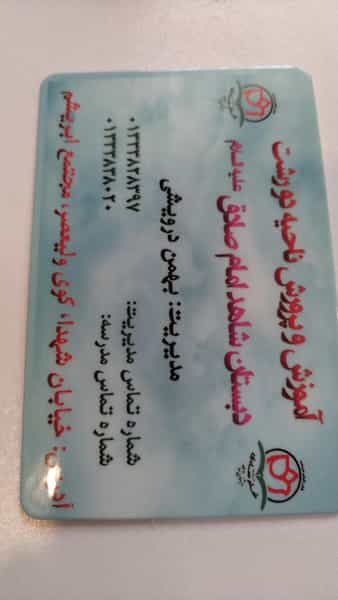 آموزش و پرورش ناحیه دو رشت
دبستان شاهد امام صادق علیه السلام
مدیریت: بهمن درویشی
شماره تماس مدیریت: ۰۱۳۳۳۸۲۸۳۹۷
شماره تماس مدرسه: ۰۱۳۳۳۸۳۸۰۲۰
آدرس: خیابان شهدا، کوی ولیعصر، مجتمع ابریشم